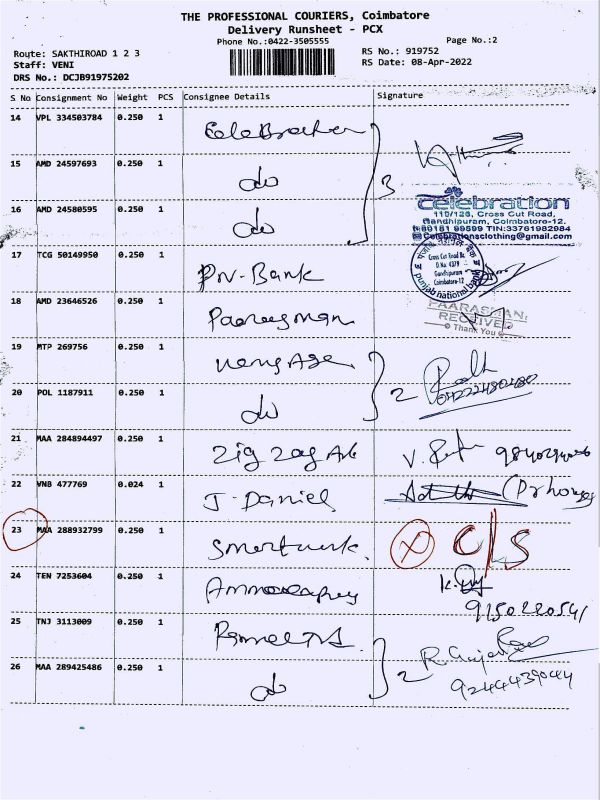 THE PROFESSIONAL COURIERS, Coimbatore
Delivery Runsheet - PCX
Phone No.:0422-3505555
Page No.:2
Route: SAKTHIROAD 1 2 3
RS No.: 919752
Staff: VENI
RS Date: 08-Apr-2022
DRS No.: DCJB91975202
S No Consignment No Weight PCS Consignee Details Signature
14 VPL 334503784 0.250 1
15 AMD 24597693 0.250 1 do
3
16 AMD 24580595 0.250 1 do
celebration
119/126, Cross Cut Road,
Gandhipuram, Coimbatore-12.
TIN:33761982984
Celebrationsclothing@gmail.com
17 TCG 50149950 0.250 1 Pn-Bank
punjab national bank
Cross Cut Road Br.
D.No. 4379
Gandhipuram
Coimbatore-12
18 AMD 23646526 0.250 1
RECEIVED
Thank You
19 MTP 269756 0.250 1
20 POL 1187911 0.250 1 do 2
21 MAA 284894497 0.250 1 Zig Zag
22 VNB 477769 0.024 1 J. Daniel
23 MAA 288932799 0.250 1 Smartwork. X C/S
24 TEN 7253604 0.250 1
25 TNJ 3113009 0.250 1
26 MAA 289425486 0.250 1 do 2
9244439044